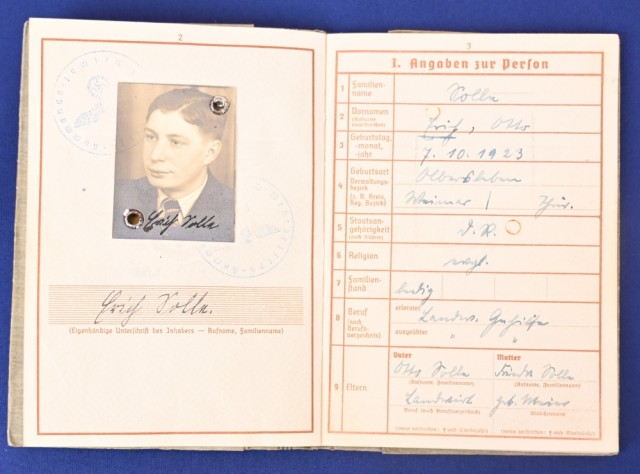 2
Erich Volle
Erich Volle.
(Eigenhändige Unterschrift des Inhabers — Rufname, Familienname)
3
I. Angaben zur Person
1 Familien-
name
Volle
2 Vornamen
(Rufname
unterstreichen)
Erich, Otto
3 Geburtstag,
-monat,
-jahr
7. 10. 1923
4 Geburtsort
Verwaltungs-
bezirk
(z. B. Kreis,
Reg. Bezirk)
Olbersleben
Weimar / Thür.
5 Staatsan-
gehörigkeit
(auch frühere)
D. R.
6 Religion
evgl.
7 Familien-
stand
ledig
8 Beruf
(nach
Berufs-
verzeichnis)
erlernter
Landw. Gehilfe
ausgeübter " "
9 Eltern
Vater Mutter
Otto Volle Frieda Volle
(Rufname, Familienname) (Rufname, Familienname)
Landwirt geb.
Beruf (nach Berufsverzeichnis) (Mädchenname)